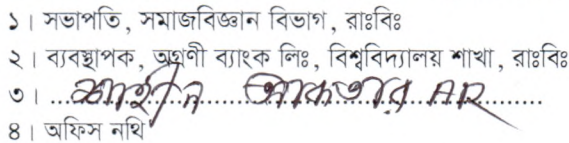 ১। সভাপতি, সমাজবিজ্ঞান বিভাগ, রাঃবিঃ
২। ব্যবস্থাপক, অগ্রণী ব্যাংক লিঃ, বিশ্ববিদ্যালয় শাখা, রাঃবিঃ
৩। শাহীন আকতার AR
৪। অফিস নথি